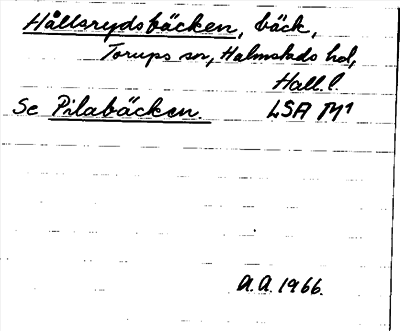 Hållsrydsbäcken, bäck,
Torups sn, Halmstads hd,
Hall. l.
Se Pilabäcken. LSA M1
A.A. 1966.